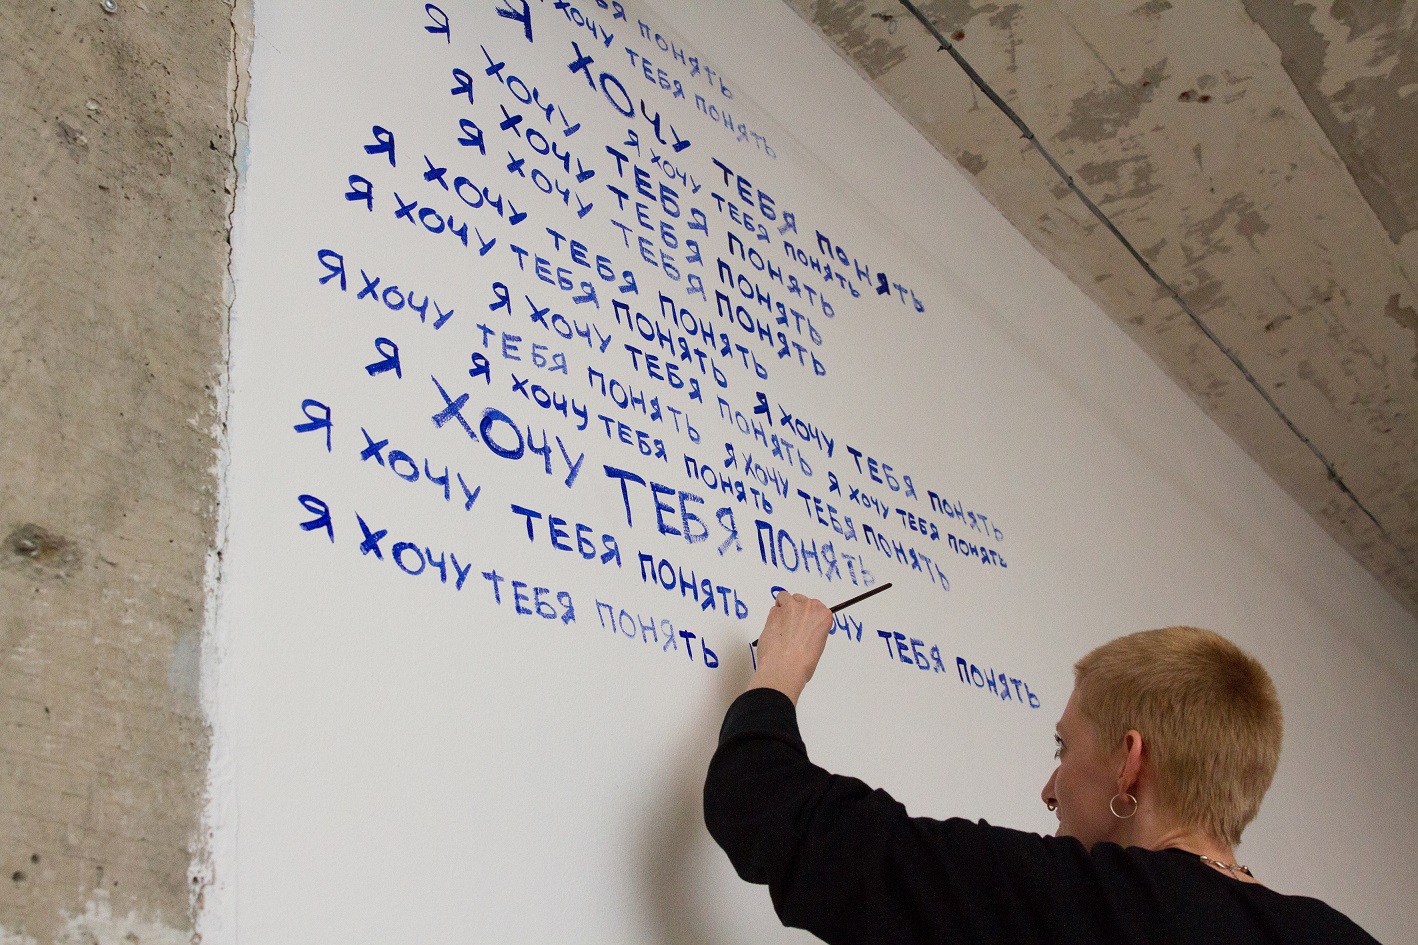 ПОНЯТЬ
ХОЧУ ТЕБЯ ПОНЯТЬ
Я ХОЧУ ТЕБЯ ПОНЯТЬ
Я ХОЧУ ТЕБЯ ПОНЯТЬ
Я ХОЧУ ТЕБЯ ПОНЯТЬ
Я ХОЧУ ТЕБЯ ПОНЯТЬ
Я ХОЧУ ТЕБЯ ПОНЯТЬ
Я ХОЧУ ТЕБЯ ПОНЯТЬ
Я ХОЧУ ТЕБЯ ПОНЯТЬ
Я ХОЧУ ТЕБЯ ПОНЯТЬ Я ХОЧУ ТЕБЯ ПОНЯТЬ
Я ХОЧУ ТЕБЯ ПОНЯТЬ Я ХОЧУ ТЕБЯ ПОНЯТЬ
Я ХОЧУ ТЕБЯ ПОНЯТЬ Я ХОЧУ ТЕБЯ ПОНЯТЬ
Я ХОЧУ ТЕБЯ ПОНЯТЬ
Я ХОЧУ ТЕБЯ ПОНЯТЬ ТЕБЯ ПОНЯТЬ
Я ХОЧУ ТЕБЯ ПОНЯТЬ